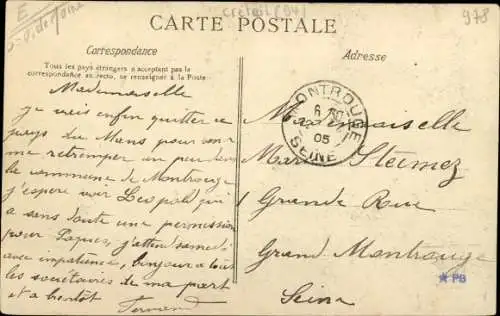 E
S. V. de Moine
Créteil (94)
978
CARTE POSTALE
Correspondance
Adresse
Tous les pays étrangers n'acceptant pas la
correspondance au recto, se renseigner à la Poste
Mademoiselle
je vais enfin quitter ce
pays du Mans pour venir
me retremper un peu dans
la commune de Montrouge
j'espère voir Léopold qui
a sans doute une permission
pour Pâques, j'attend samedi
avec impatience, bonjour à tous
les sociétaires de ma part
et à bientôt
Fernand
MONTROUGE
6
05
SEINE
Mademoiselle
Steimez
1 Grande Rue
Grand Montrouge
Seine
PB